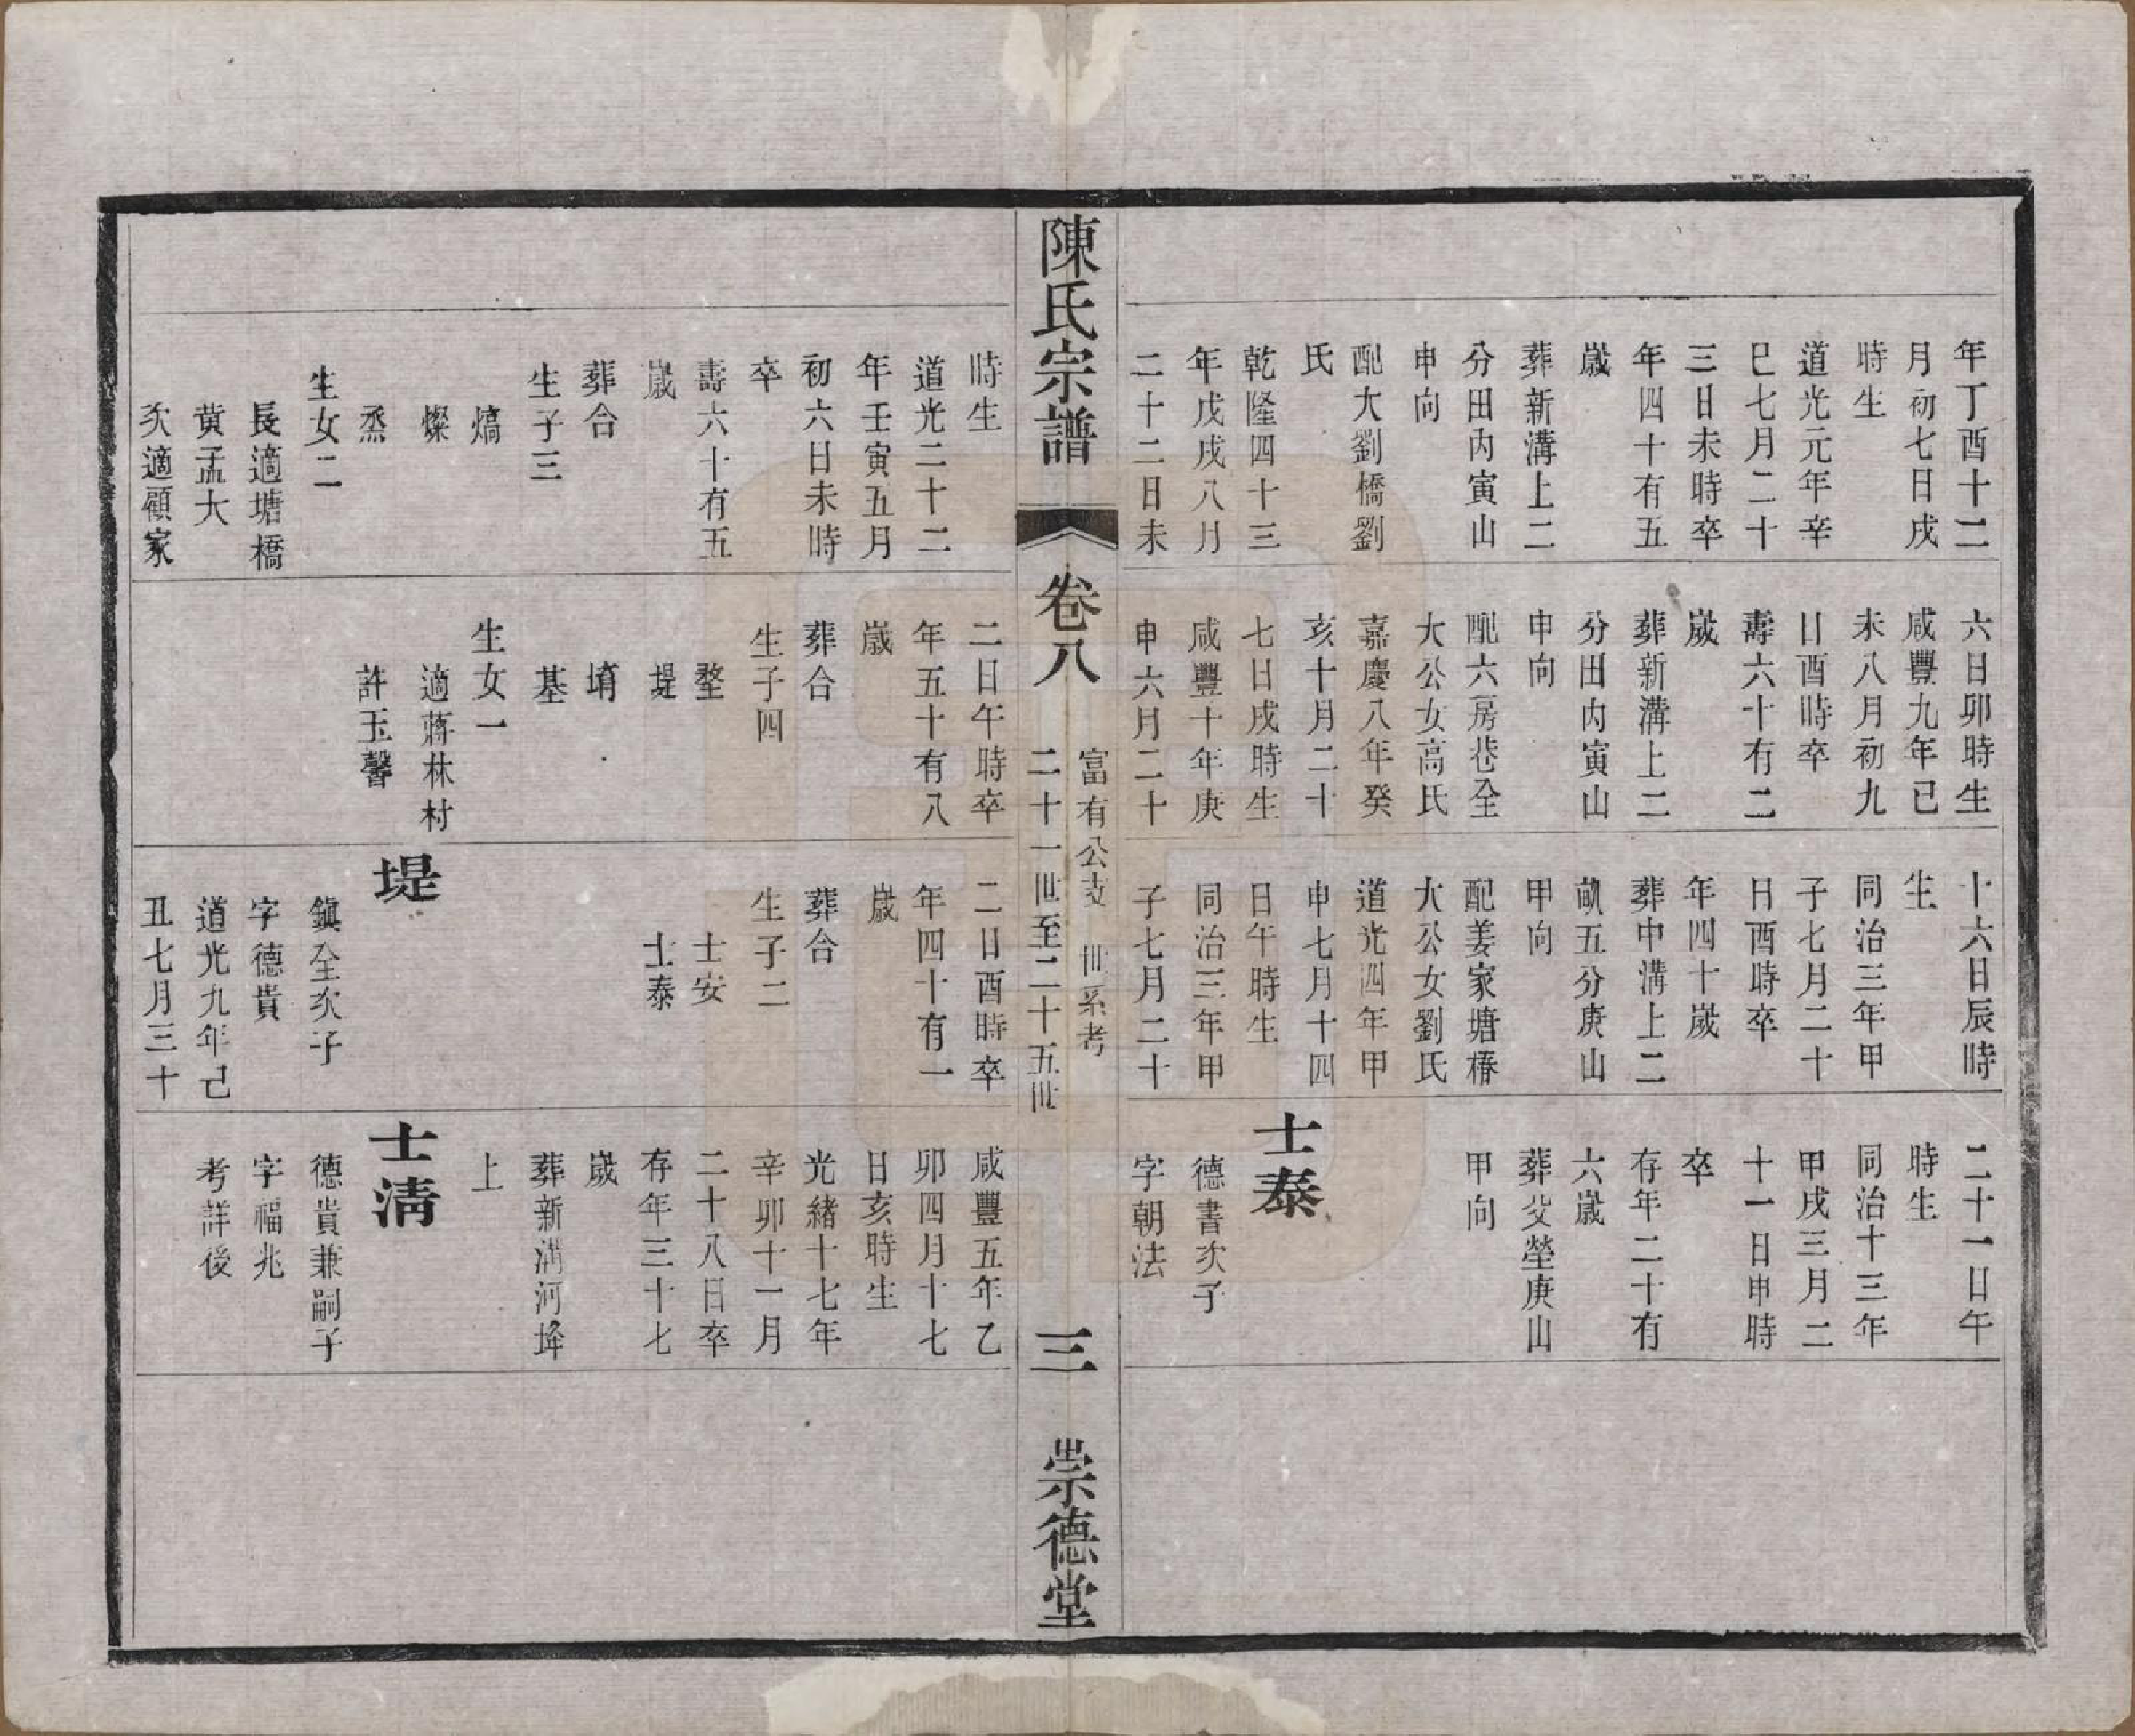 年丁酉十二
月初七日戌
時生
道光元年辛
巳七月二十
三日未時卒
年四十有五
歲
葬新溝上二
分田內寅山
申向
配大劉橋劉
氏
乾隆四十三
年戊戌八月
二十二日未
六日卯時生
咸豐九年己
未八月初九
日酉時卒
壽六十有二
歲
葬新溝上二
分田內寅山
申向
配六房巷全
大公女高氏
嘉慶八年癸
亥十月二十
七日戌時生
咸豐十年庚
申六月二十
十六日辰時
生
同治三年甲
子七月二十
日酉時卒
年四十歲
葬中溝上二
畝五分庚山
甲向
配姜家塘椿
大公女劉氏
道光四年甲
申七月十四
日午時生
同治三年甲
子七月二十
二十一日午
時生
同治十三年
甲戌三月二
十一日申時
卒
存年二十有
六歲
葬父塋庚山
甲向
士泰
德書次子
字朝法
陳氏宗譜
卷八
富有公支 世系考
二十一世至二十五世
三
崇德堂
時生
道光二十二
年壬寅五月
初六日未時
卒
壽六十有五
歲
葬合
生子三
熇
燦
烝
生女二
長適塘橋
黄孟大
次適顧家
二日午時卒
年五十有八
歲
葬合
生子四
堥
堤
堉
基
生女一
適蔣林村
許玉馨
二日酉時卒
年四十有一
歲
葬合
生子二
士安
士泰
堤
鎮全次子
字德貴
道光九年己
丑七月三十
咸豐五年乙
卯四月十七
日亥時生
光緒十七年
辛卯十一月
二十八日卒
存年三十七
歲
葬新溝河埄
上
士清
德貴兼嗣子
字福兆
考詳後